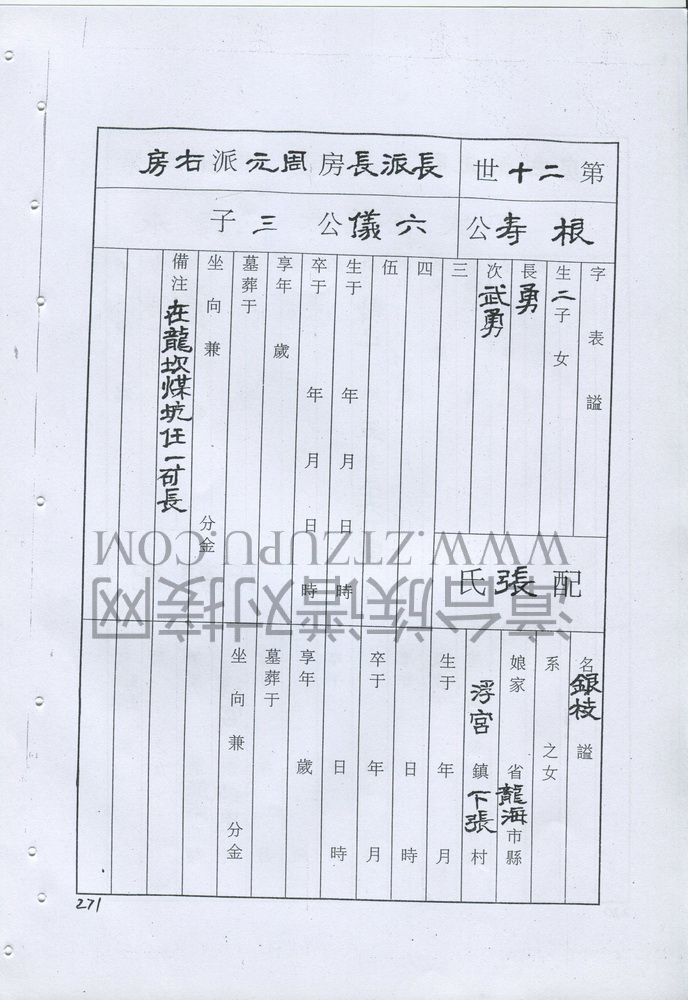 第二十世
長派長房周元派右房
根壽公
六儀公三子
字表謚
生二子女
長勇
次武勇
三
四
伍
生于年月日時
卒于年月日時
享年歲
墓葬于
坐向兼分金
備注在龍坎煤坑任一矿長
配張氏
名銀枝謚
系之女
娘家省龍海市縣
浮宮鎮下張村
生于年月日時
卒于年月日時
享年歲
墓葬于
坐向兼分金
271
WWW.ZTZUPU.COM
漳台族谱对接网